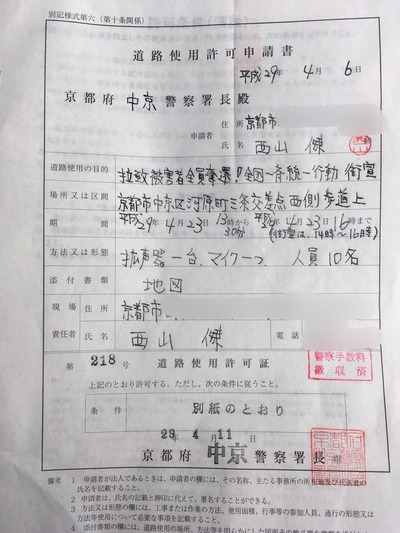 別記様式第六（第十条関係）
道路使用許可申請書
平成29年 4月 6日
京都府 中京 警察署長殿
住所 京都市
申請者
氏名 西山 傑
道路使用の目的 拉致被害者全員奪還!全国一斉統一行動 街宣
場所又は区間 京都市中京区河原町三条交差点西側歩道上
期間 平成29年4月23日13時30分から 年4月23日16時まで
(街宣は、14時〜16時)
方法又は形態 拡声器一台、マイク一つ 人員10名
添付書類 地図
現場 住所 京都市
責任者 氏名 西山 傑 電話
第 218号 道路使用許可証
警察手数料
徴収済
上記のとおり許可する。ただし、次の条件に従うこと。
条件 別紙のとおり
29年 4月 11日
京都府 中京 警察署長
備考 1 申請者が法人であるときは、申請者の欄には、その名称、主たる事務所の所在地及び代表者の
氏名を記載すること。
2 申請者は、氏名の記載と押印に代えて、署名することができる。
3 方法又は形態の欄には、工事又は作業の方法、使用面積、行事等の参加人員、通行の形態又は
方法等使用について必要な事項を記載すること。